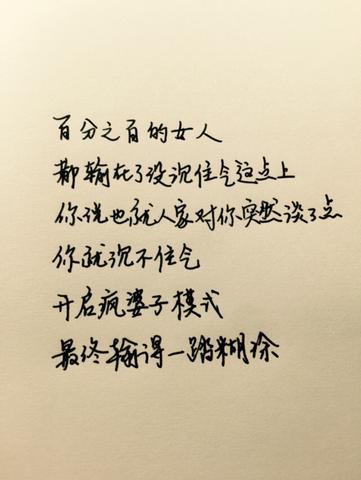 百分之百的女人
都输在了没沉住气这点上
你说也就人家对你突然谈了点
你就沉不住气
开启疯婆子模式
最终输得一踏糊涂